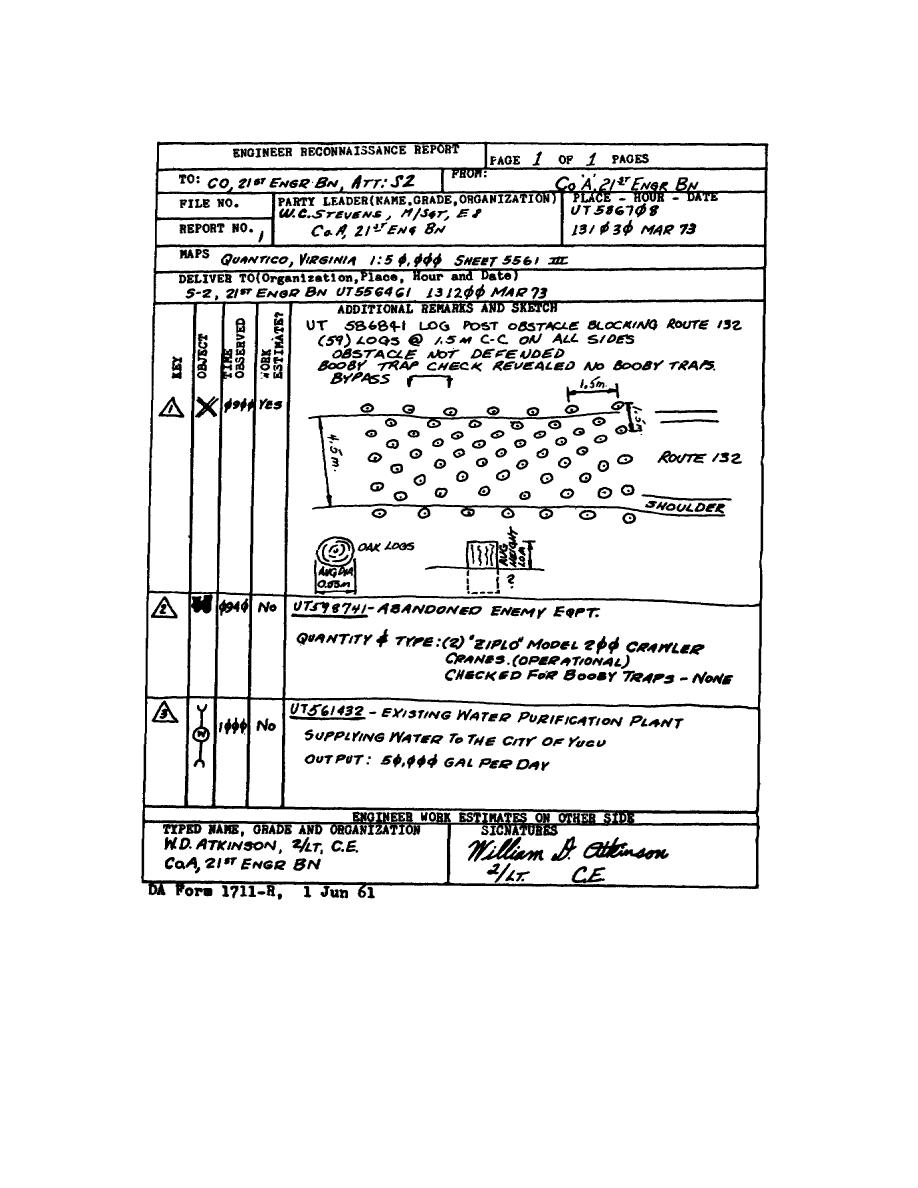 ENGINEER RECONNAISSANCE REPORT
PAGE 1 OF 1 PAGES
TO: CO, 21ST ENGR BN, ATT: S2
FROM: Co 'A', 21ST ENGR BN
FILE NO.
REPORT NO. 1
PARTY LEADER(NAME,GRADE,ORGANIZATION)
W.C. STEVENS, M/SGT, E8
Co. A, 21ST ENG BN
PLACE - HOUR - DATE
UT586708
131030 MAR 73
MAPS QUANTICO, VIRGINIA 1:50,000 SHEET 5561 III
DELIVER TO(Organization,Place, Hour and Date)
S-2, 21ST ENGR BN UT556461 131200 MAR 73
KEY
OBJECT
TIME OBSERVED
WORK ESTIMATE?
ADDITIONAL REMARKS AND SKETCH
UT 586841 LOG POST OBSTACLE BLOCKING ROUTE 132
(59) LOGS @ 1.5 M C-C ON ALL SIDES
OBSTACLE NOT DEFENDED
BOOBY TRAP CHECK REVEALED NO BOOBY TRAPS.
BYPASS
1 0900 YES
1.5m.
1.5m.
4.5 m.
ROUTE 132
SHOULDER
OAK LOGS
AVG DIA
AVG HEIGHT
?
2 0940 NO UT598741 - ABANDONED ENEMY EQPT.
QUANTITY & TYPE: (2) "ZIPLO" MODEL 200 CRAWLER
CRANES. (OPERATIONAL)
CHECKED FOR BOOBY TRAPS - NONE
3 W 1000 NO UT561432 - EXISTING WATER PURIFICATION PLANT
SUPPLYING WATER TO THE CITY OF YUCU
OUTPUT: 50,000 GAL PER DAY
ENGINEER WORK ESTIMATES ON OTHER SIDE
TYPED NAME, GRADE AND ORGANIZATION
W.D. ATKINSON, 2/LT, C.E.
Co.A, 21ST ENGR BN
SIGNATURES
William D. Atkinson
2/LT. C.E.
DA Form 1711-R, 1 Jun 61